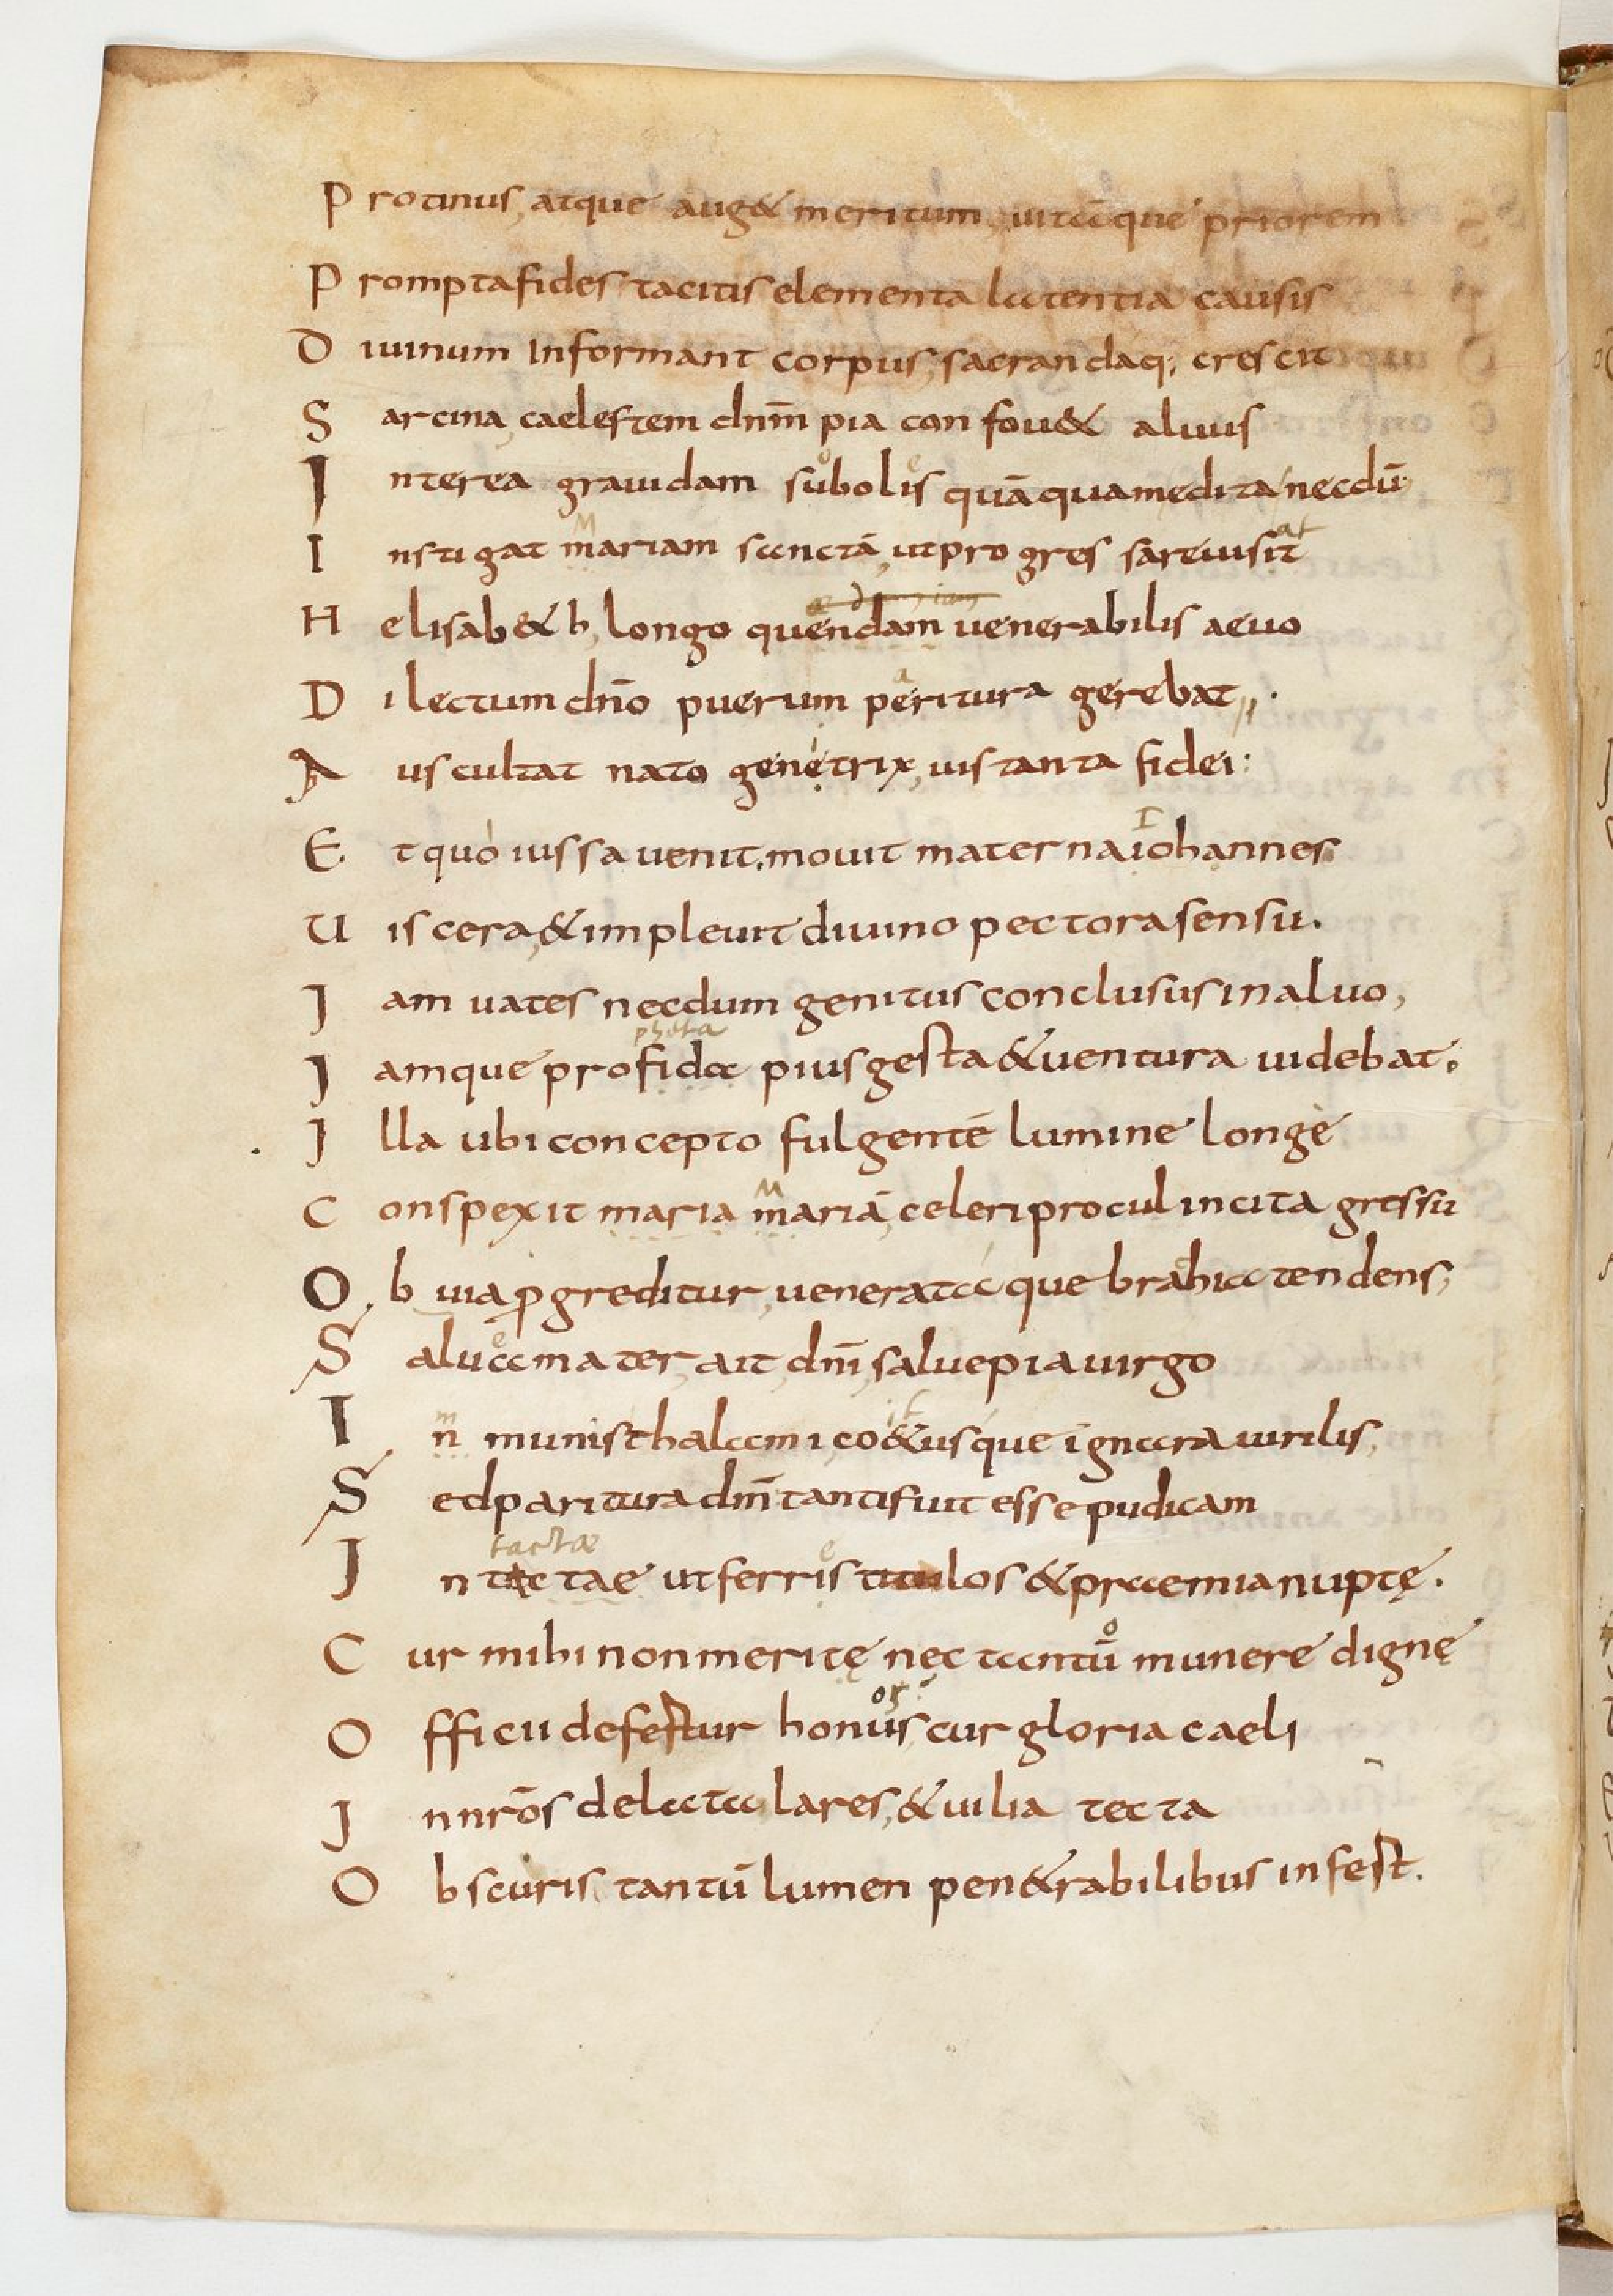 Protinus, atque aug& meritum, uitaque priorem
Prompta fides tacitis elementa latentia causis
Diuinum Informant corpus, sacrandaq; crescit
Sarcina, caelestem dnm̄ pia con fou& aluuis
Interea grauidam subolis quā quam edita necdū
Instigat mariam sanctā, ut pro gressa reuisit
Helisab&h, longo quendam uenerabilis aeuo
Dilectum dn̄o puerum peritura gerebat.
Auscultat nato genetrix, uis tanta fidei:
Et quo iussa uenit. mouit materna iohannes
Uiscera, & impleuit diuino pectora sensu.
Jam uates necdum genitus conclusus in aluo,
pheta
Jamque profida pius gesta & uentura uidebat.
Jlla ubi concepto fulgentē lumine longe
Conspexit maria mariā, celeri procul incita gressu
Obuia ꝑgreditur, uenerataque brahia tendens,
Salua mater, ait, dnī, salue pia uirgo
In munis thalami, co&usque ignara uirilis,
Sed paritura dnm̄ tanti fuit esse pudicam
tactae
Jn tactae ut ferris titulos & praemia nuptę.
Cur mihi non meritę nec tantū munere dignę
Officii defertur honus, cur gloria caeli
Jn nrōs delata lares, & uilia tecta
Obscuris tantū lumen pen&rabilibus infert.